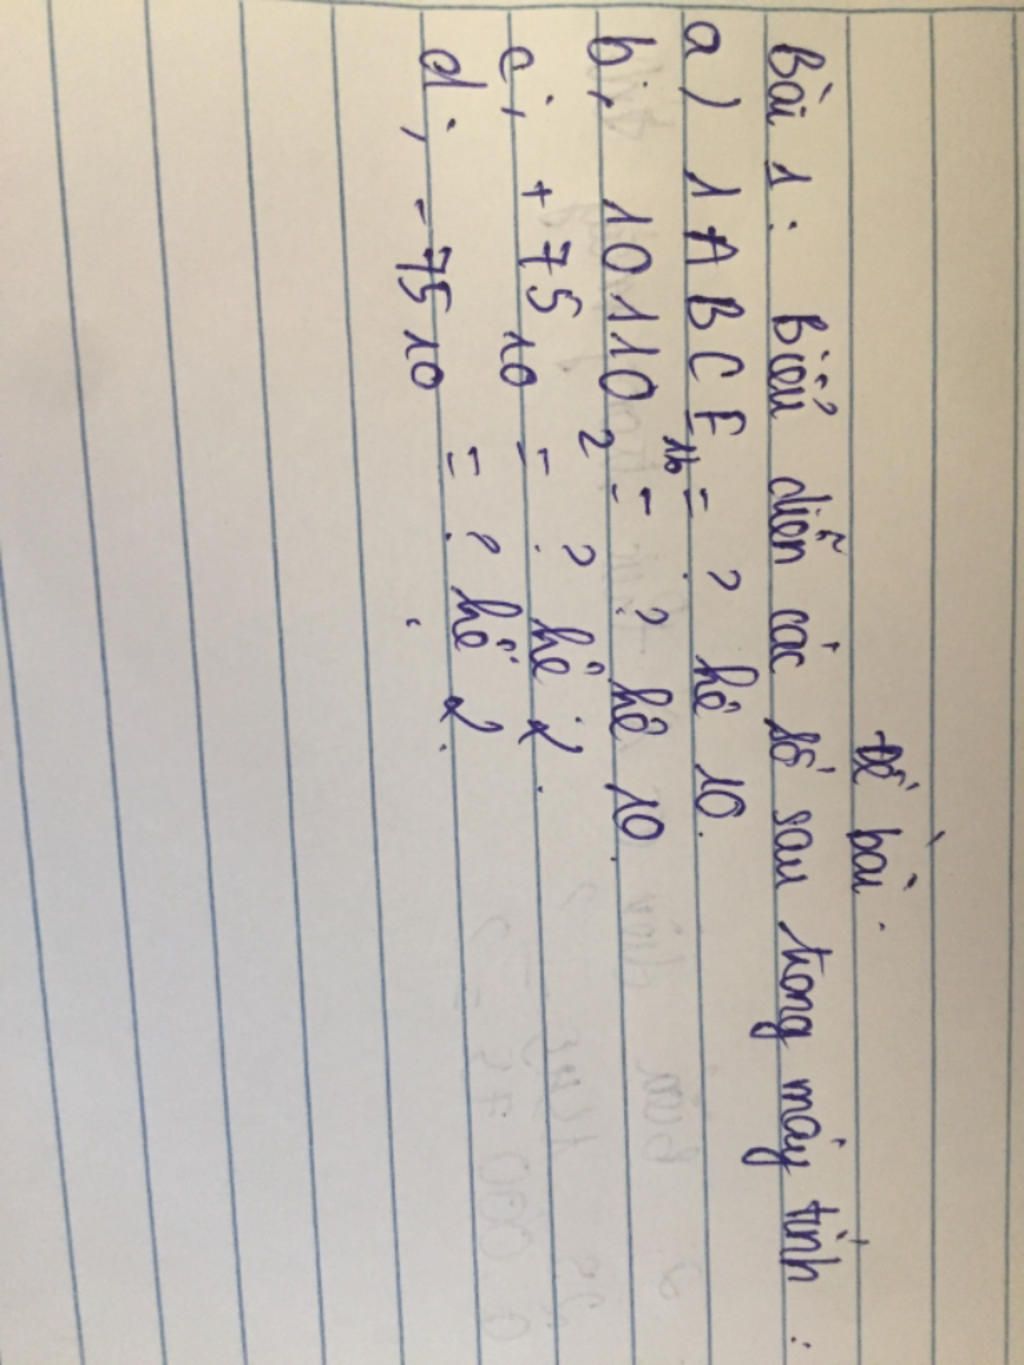 Đề bài.
Bài 1: Biểu diễn các số sau trong máy tính:
a) 1ABCE₁₆ = ? hệ 10.
b, 10110₂ = ? hệ 10.
c, +75₁₀ = ? hệ 2.
d, -75₁₀ = ? hệ 2.